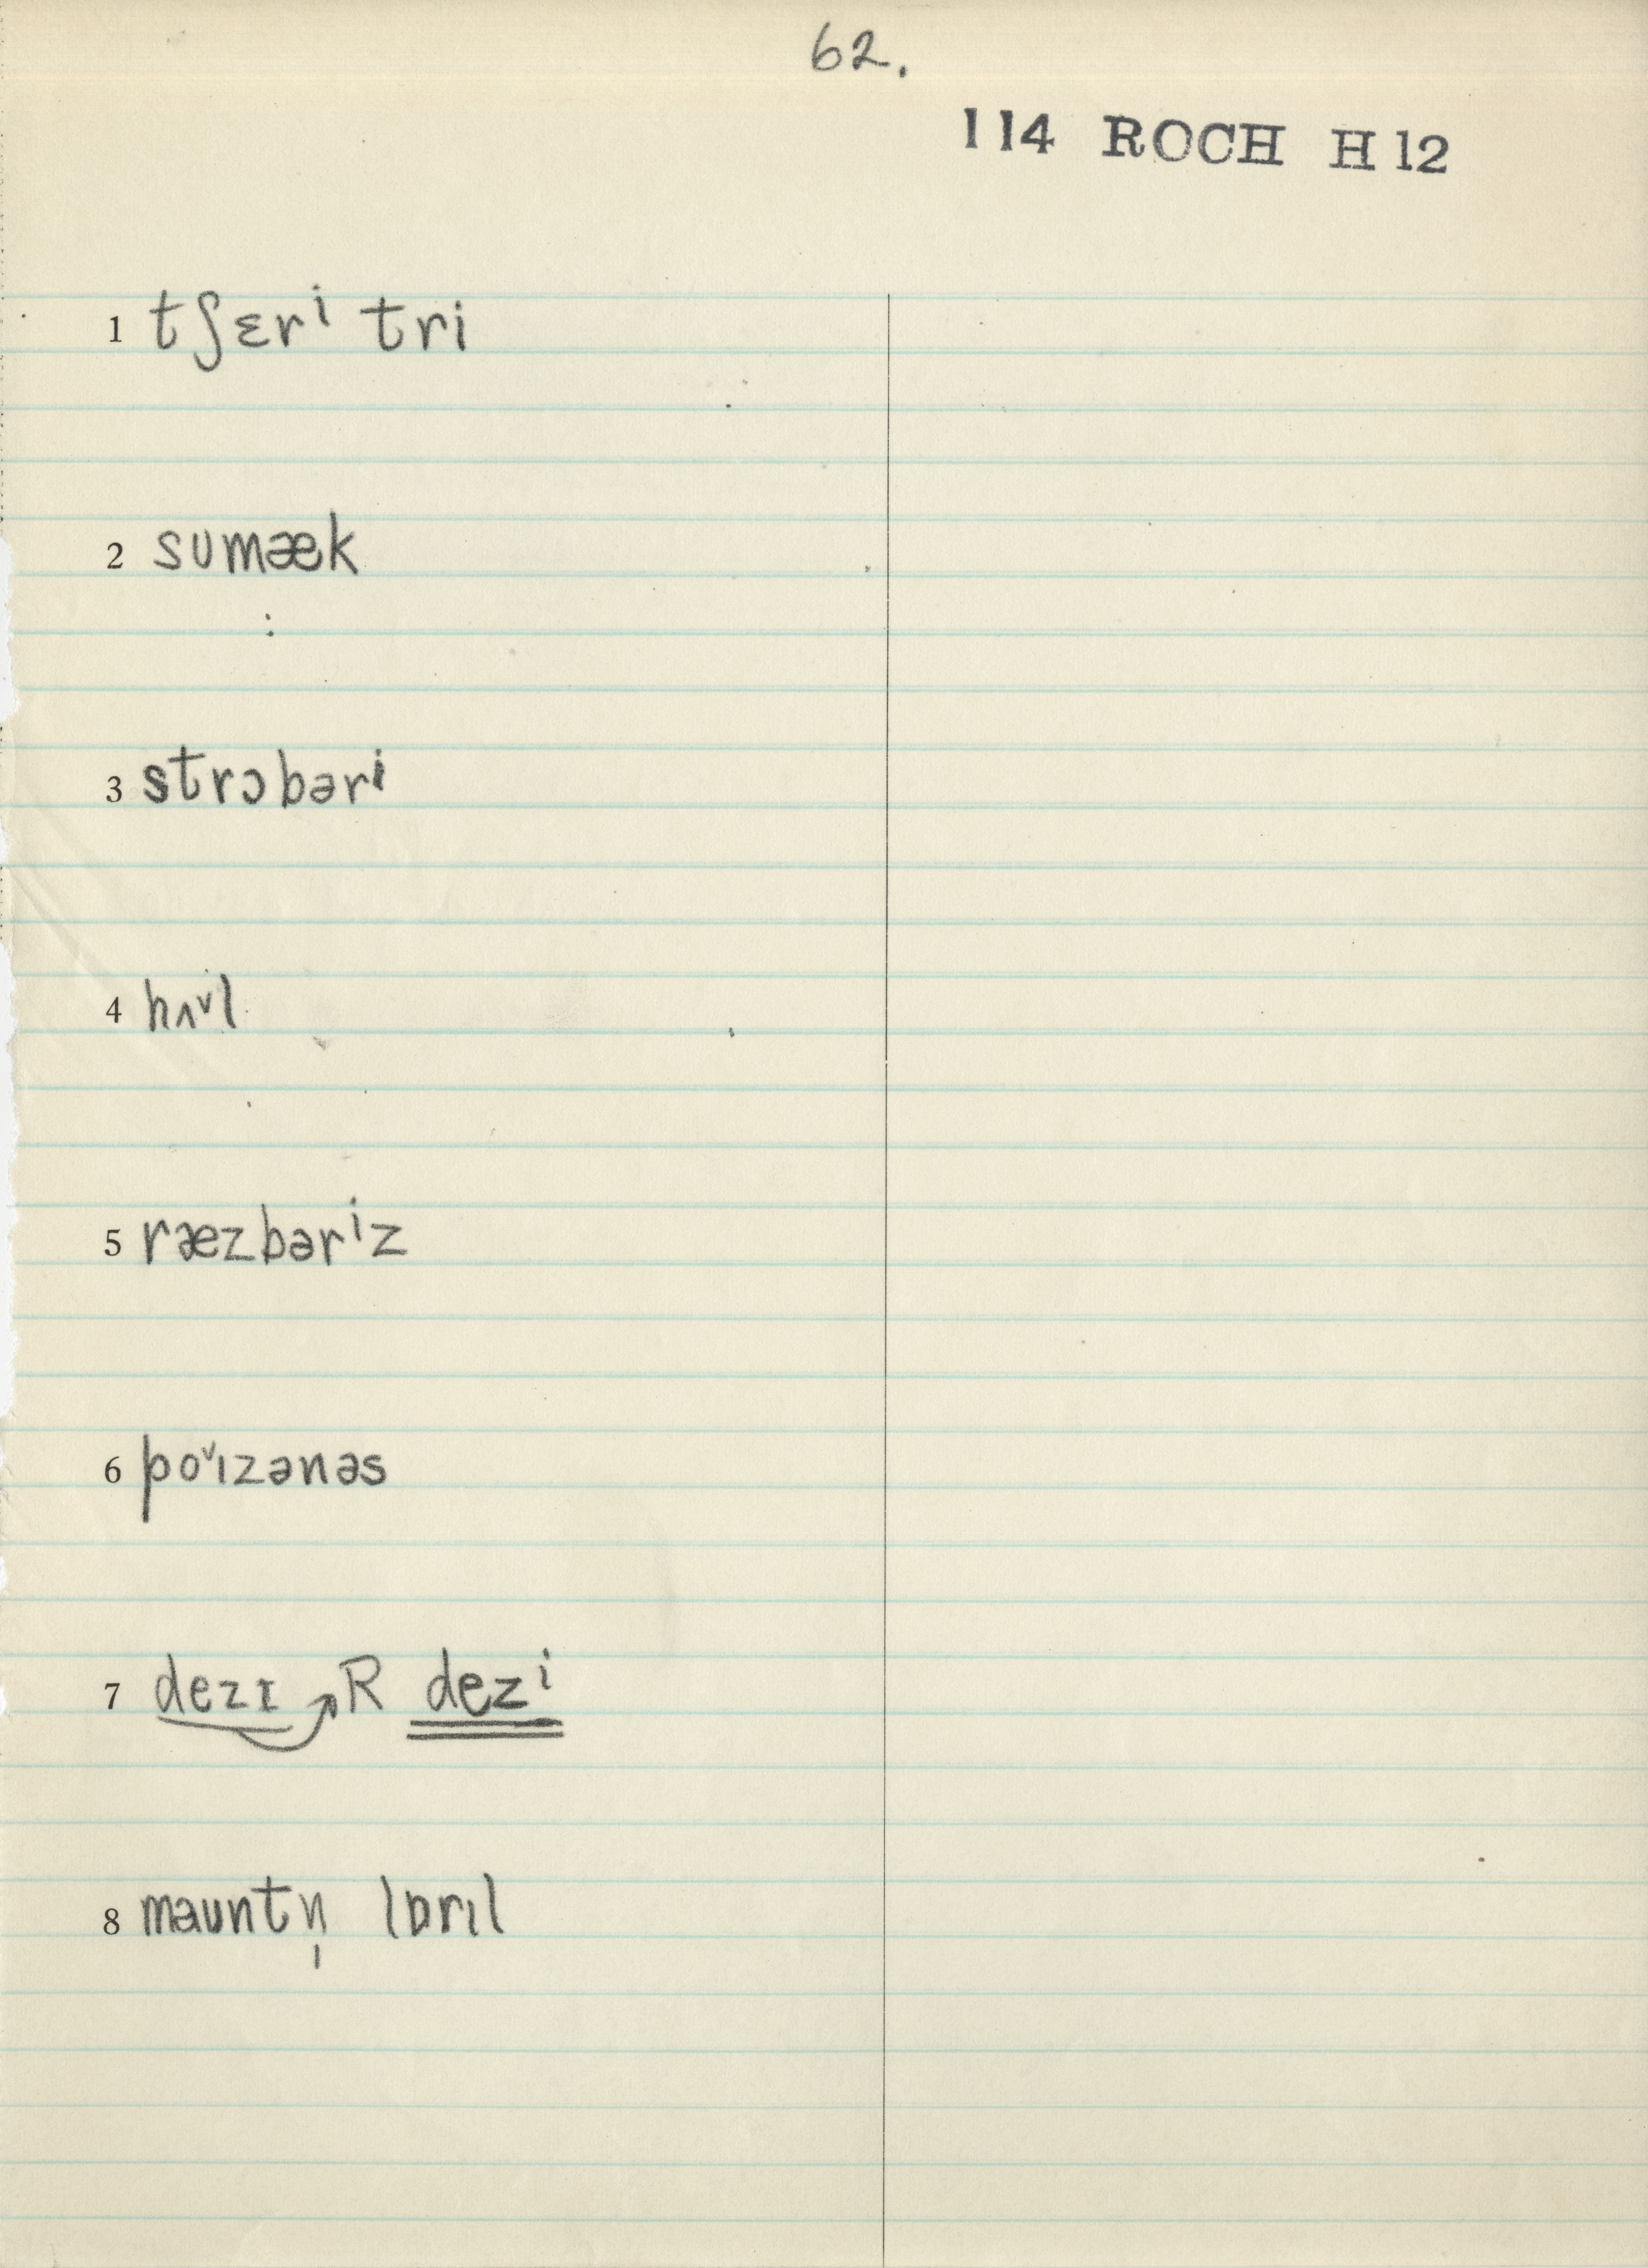 62.
114 ROCH H 12
1 tʃɛrⁱ tri
2 sʊmæk
3 strɔbərⁱ
4 hʌᵛl
5 ræzbərⁱz
6 poᵛɪzənəs
7 dezɪ ↗R dezⁱ
8 mauntn̩ lɒrɪl